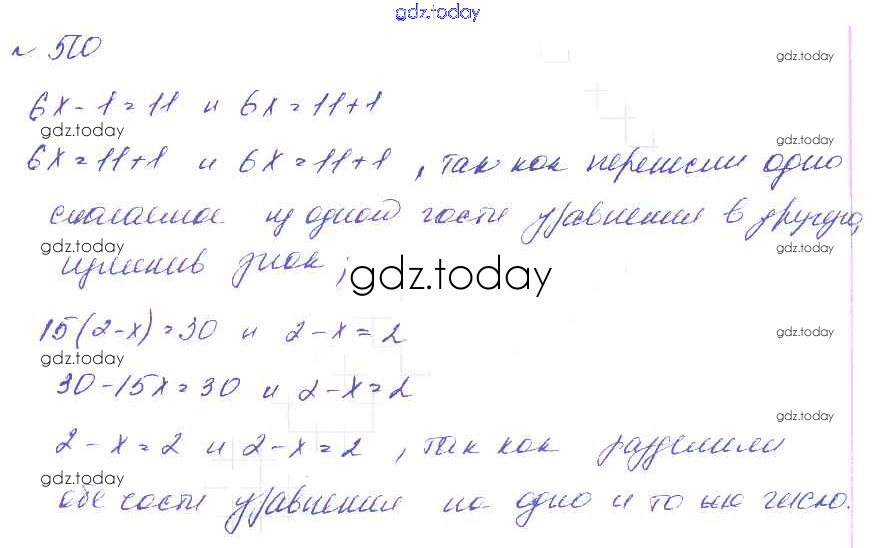 gdz.today
№ 510
gdz.today
6x - 1 = 11 и 6x = 11+1
gdz.today
gdz.today
6x = 11+1 и 6x = 11+1, так как перенесли одно
слагаемое из одной части уравнения в другую,
gdz.today
gdz.today
изменив знак;
gdz.today
15(2-x) = 30 и 2-x = 2
gdz.today
gdz.today
30-15x = 30 и 2-x = 2
gdz.today
2-x = 2 и 2-x = 2, так как разделили
gdz.today
обе части уравнения на одно и то же число.
gdz.today